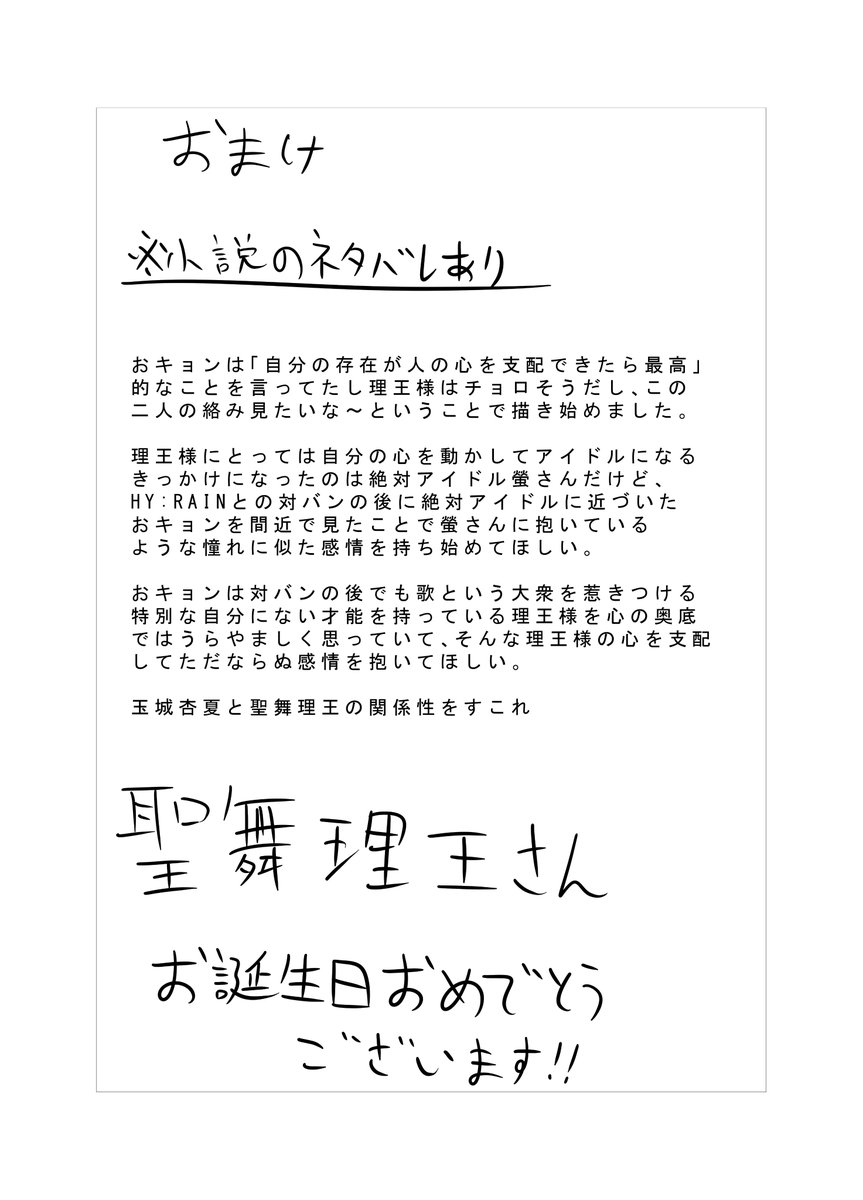 おまけ
※小説のネタバレあり
おキョンは「自分の存在が人の心を支配できたら最高」
的なことを言ってたし理王様はチョロそうだし、この
二人の絡み見たいな～ということで描き始めました。
理王様にとっては自分の心を動かしてアイドルになる
きっかけになったのは絶対アイドル螢さんだけど、
HY:RAINとの対バンの後に絶対アイドルに近づいた
おキョンを間近で見たことで螢さんに抱いている
ような憧れに似た感情を持ち始めてほしい。
おキョンは対バンの後でも歌という大衆を惹きつける
特別な自分にない才能を持っている理王様を心の奥底
ではうらやましく思っていて、そんな理王様の心を支配
してただならぬ感情を抱いてほしい。
玉城杏夏と聖舞理王の関係性をすこれ
聖舞理王さん
お誕生日おめでとう
ございます!!